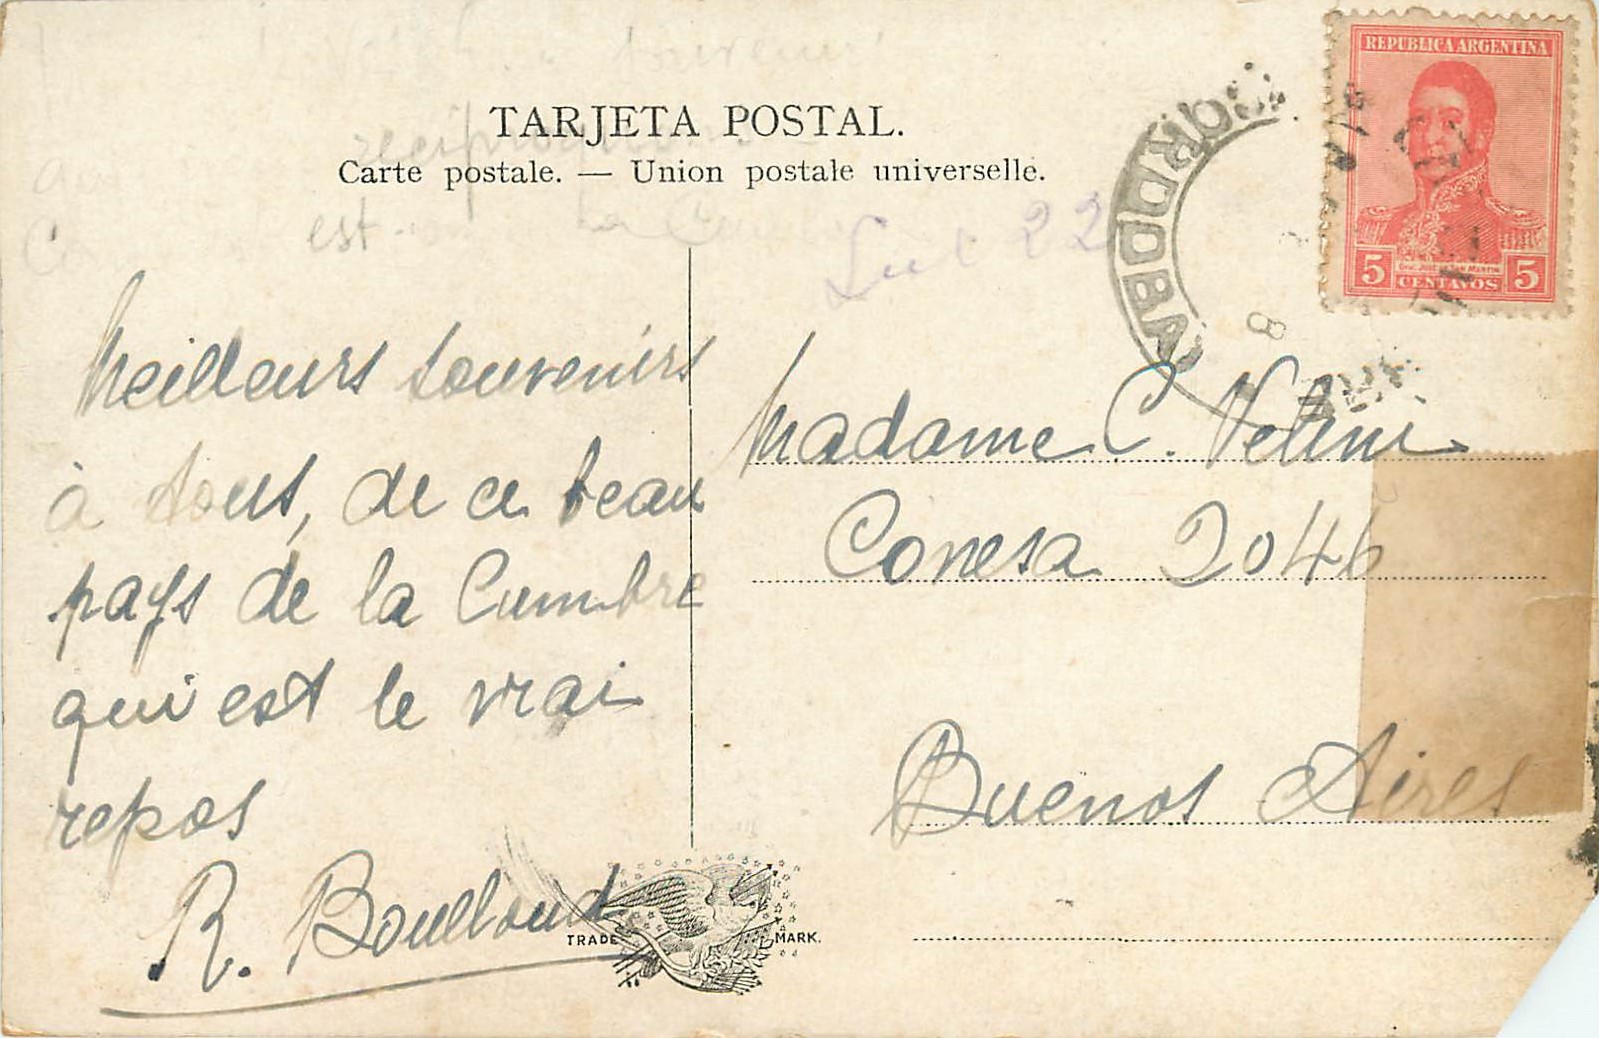 souvenir
TARJETA POSTAL.
Carte postale. — Union postale universelle.
est
22
CORDOBA
8
REPUBLICA ARGENTINA
5 CENTAVOS 5
Meilleurs souvenirs
à tous, de ce beau
pays de la Cumbre
qui est le vrai
repos
R. Boulloud
Madame C. Velini
Conesa 2046
Buenos Aires
TRADE MARK.